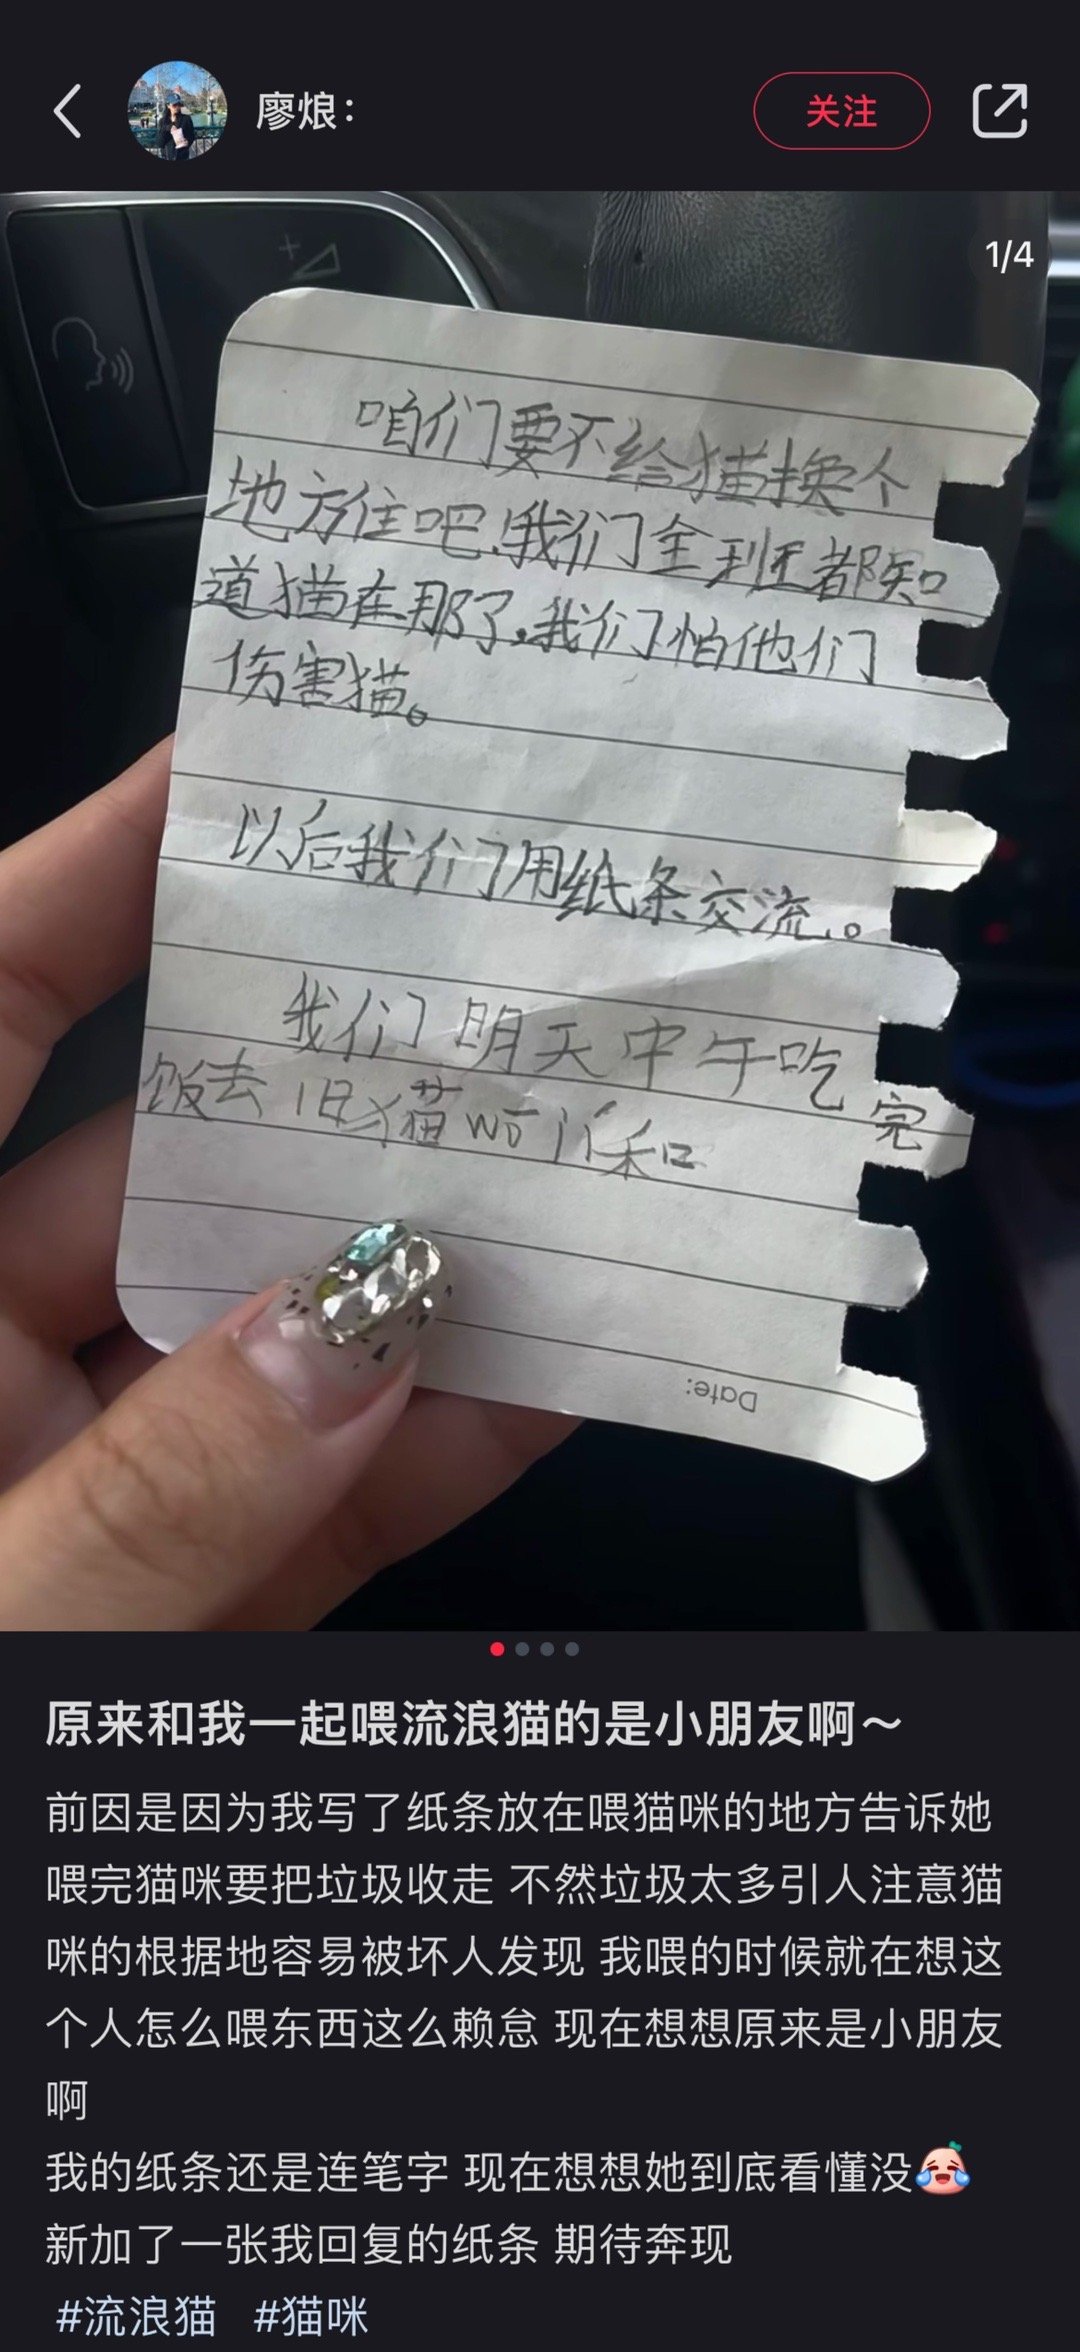 廖烺：
关注
1/4
咱们要不给猫换个
地方住吧，我们全班都知
道猫在那了，我们怕他们
伤害猫。
以后我们用纸条交流。
我们明天中午吃完
饭去旧猫wō
Date:
原来和我一起喂流浪猫的是小朋友啊～
前因是因为我写了纸条放在喂猫咪的地方告诉她
喂完猫咪要把垃圾收走 不然垃圾太多引人注意猫
咪的根据地容易被坏人发现 我喂的时候就在想这
个人怎么喂东西这么赖怠 现在想想原来是小朋友
啊
我的纸条还是连笔字 现在想想她到底看懂没
新加了一张我回复的纸条 期待奔现
#流浪猫 #猫咪